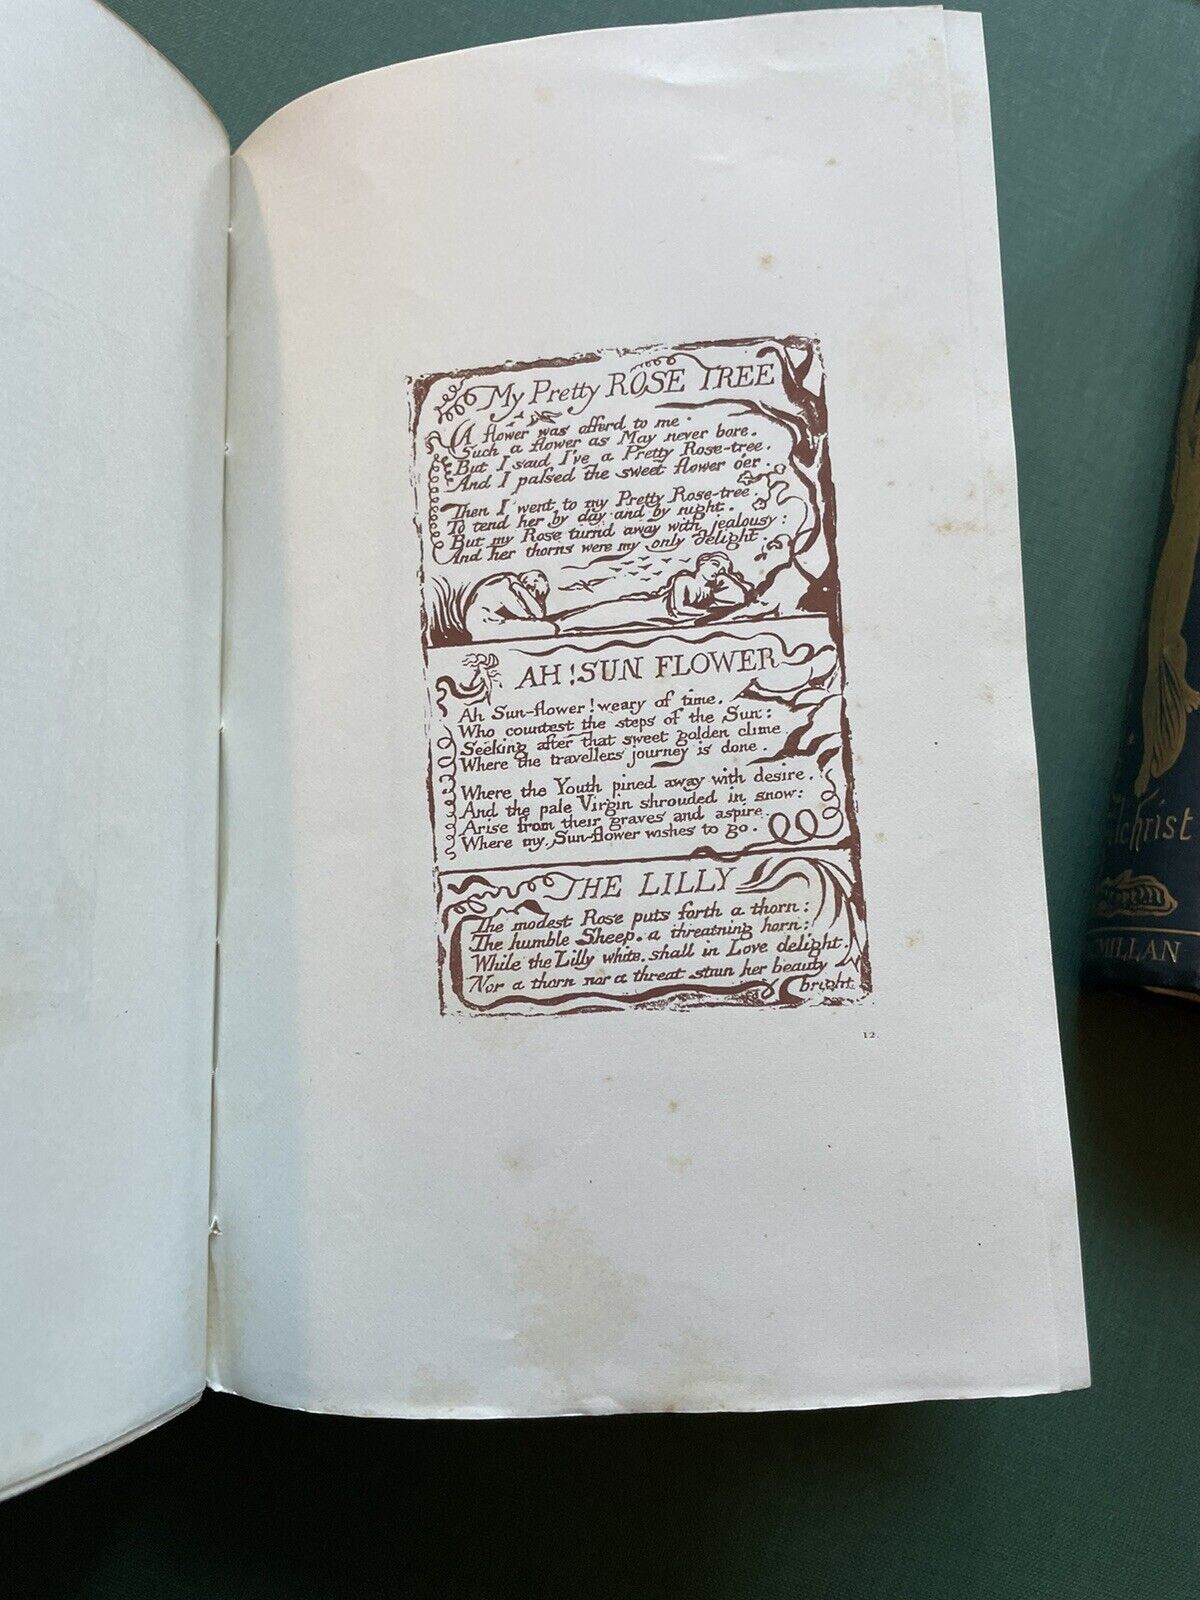 My Pretty ROSE TREE
A flower was offerd to me.
Such a flower as May never bore.
But I said I've a Pretty Rose-tree.
And I paſsed the sweet flower oer.
Then I went to my Pretty Rose-tree.
To tend her by day and by night.
But my Rose turnd away with jealousy:
And her thorns were my only delight.
AH! SUN FLOWER
Ah Sun-flower! weary of time.
Who countest the steps of the Sun:
Seeking after that sweet golden clime
Where the travellers journey is done.
Where the Youth pined away with desire.
And the pale Virgin shrouded in snow:
Arise from their graves and aspire.
Where my Sun-flower wishes to go.
THE LILLY
The modest Rose puts forth a thorn:
The humble Sheep. a threatning horn:
While the Lilly white. shall in Love delight.
Nor a thorn nor a threat stain her beauty
bright.
12.
lchrist
MILLAN